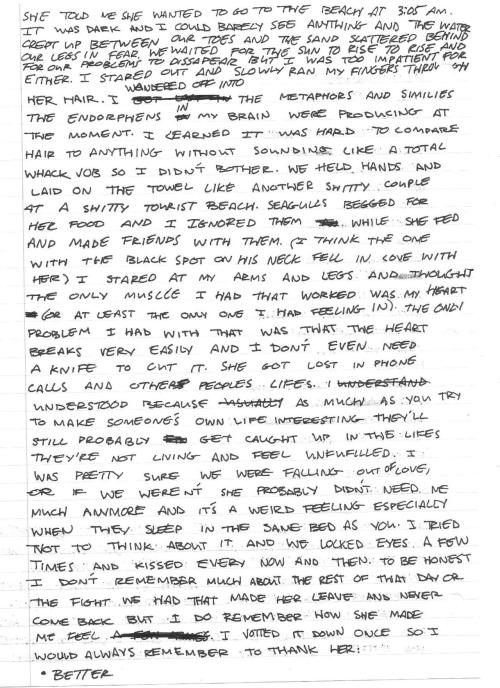 SHE TOLD ME SHE WANTED TO GO TO THE BEACH AT 3:05 AM.
IT WAS DARK AND I COULD BARELY SEE ANYTHING AND THE WATER
CREPT UP BETWEEN OUR TOES AND THE SAND SCATTERED BEHIND
OUR LEGS IN FEAR. WE WAITED FOR THE SUN TO RISE TO RISE AND
FOR OUR PROBLEMS TO DISSAPEAR BUT I WAS TOO IMPATIENT FOR
EITHER. I STARED OUT AND SLOWLY RAN MY FINGERS THROUGH
WANDERED OFF INTO
HER HAIR. I THE METAPHORS AND SIMILIES
IN
THE ENDORPHENS MY BRAIN WERE PRODUCING AT
THE MOMENT. I LEARNED IT WAS HARD TO COMPARE
HAIR TO ANYTHING WITHOUT SOUNDING LIKE A TOTAL
WHACK JOB SO I DIDN'T BOTHER. WE HELD HANDS AND
LAID ON THE TOWEL LIKE ANOTHER SHITTY COUPLE
AT A SHITTY TOURIST BEACH. SEAGULLS BEGGED FOR
HER FOOD AND I IGNORED THEM WHILE SHE FED
AND MADE FRIENDS WITH THEM. (I THINK THE ONE
WITH THE BLACK SPOT ON HIS NECK FELL IN LOVE WITH
HER) I STARED AT MY ARMS AND LEGS AND THOUGHT
THE ONLY MUSCLE I HAD THAT WORKED WAS MY HEART
(OR AT LEAST THE ONLY ONE I HAD FEELING IN). THE ONLY
PROBLEM I HAD WITH THAT WAS THAT THE HEART
BREAKS VERY EASILY AND I DON'T EVEN NEED
A KNIFE TO CUT IT. SHE GOT LOST IN PHONE
CALLS AND OTHER PEOPLES LIFES. I UNDERSTAND
UNDERSTOOD BECAUSE USUALLY AS MUCH AS YOU TRY
TO MAKE SOMEONE'S OWN LIFE INTERESTING THEY'LL
STILL PROBABLY GET CAUGHT UP IN THE LIFES
THEY'RE NOT LIVING AND FEEL UNFULFILLED. I
WAS PRETTY SURE WE WERE FALLING OUT OF LOVE,
OR IF WE WEREN'T SHE PROBABLY DIDN'T NEED ME
MUCH ANYMORE AND IT'S A WEIRD FEELING ESPECIALLY
WHEN THEY SLEEP IN THE SAME BED AS YOU. I TRIED
NOT TO THINK ABOUT IT AND WE LOCKED EYES A FEW
TIMES AND KISSED EVERY NOW AND THEN. TO BE HONEST
I DON'T REMEMBER MUCH ABOUT THE REST OF THAT DAY OR
THE FIGHT WE HAD THAT MADE HER LEAVE AND NEVER
COME BACK BUT I DO REMEMBER HOW SHE MADE
ME FEEL. I JOTTED IT DOWN ONCE SO I
WOULD ALWAYS REMEMBER TO THANK HER:
• BETTER